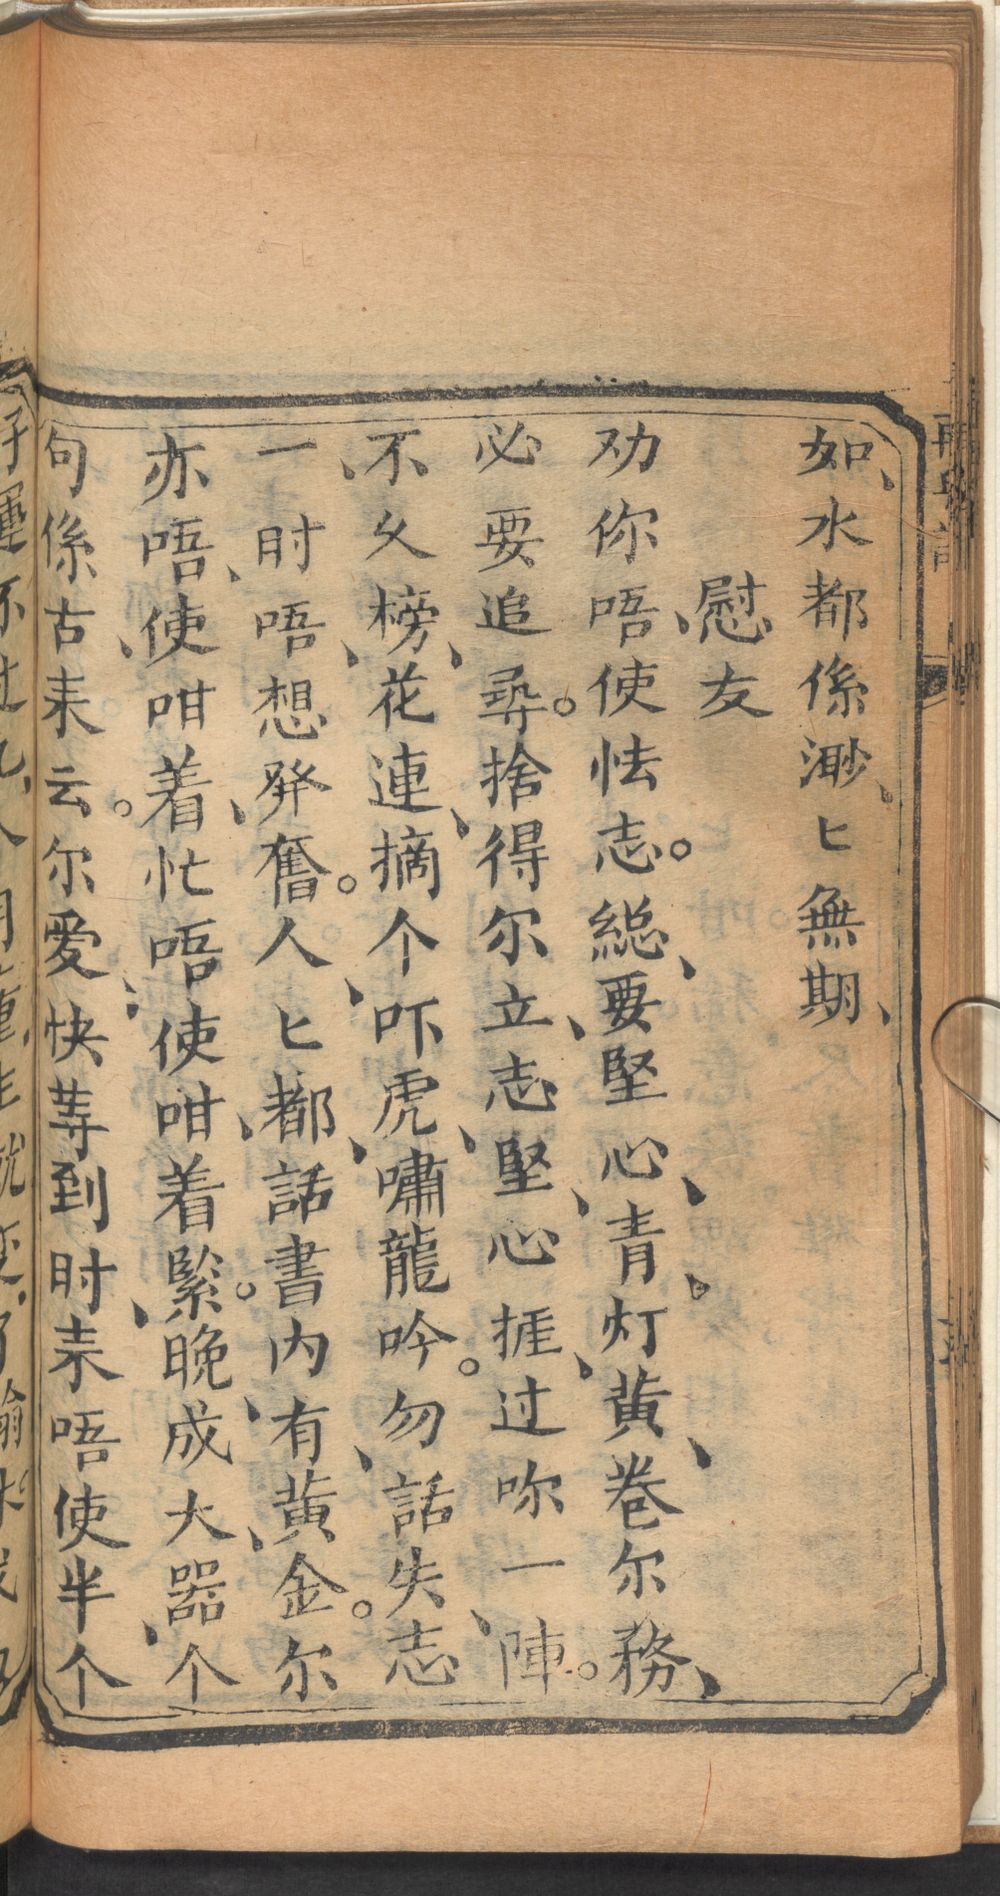 如水都係渺匕無期
慰友
劝你唔使怯志。総要堅心青灯黄卷尔務
必要追尋。捨得尔立志堅心捱过呢一陣。
不久榜花連摘个吓虎嘯龍吟。勿話失志
一时唔想發奮。人匕都話書内有黄金。尔
亦唔使咁着忙唔使咁着緊。晚成大器个
句係古耒云。尔爱快荨到时耒唔使半个